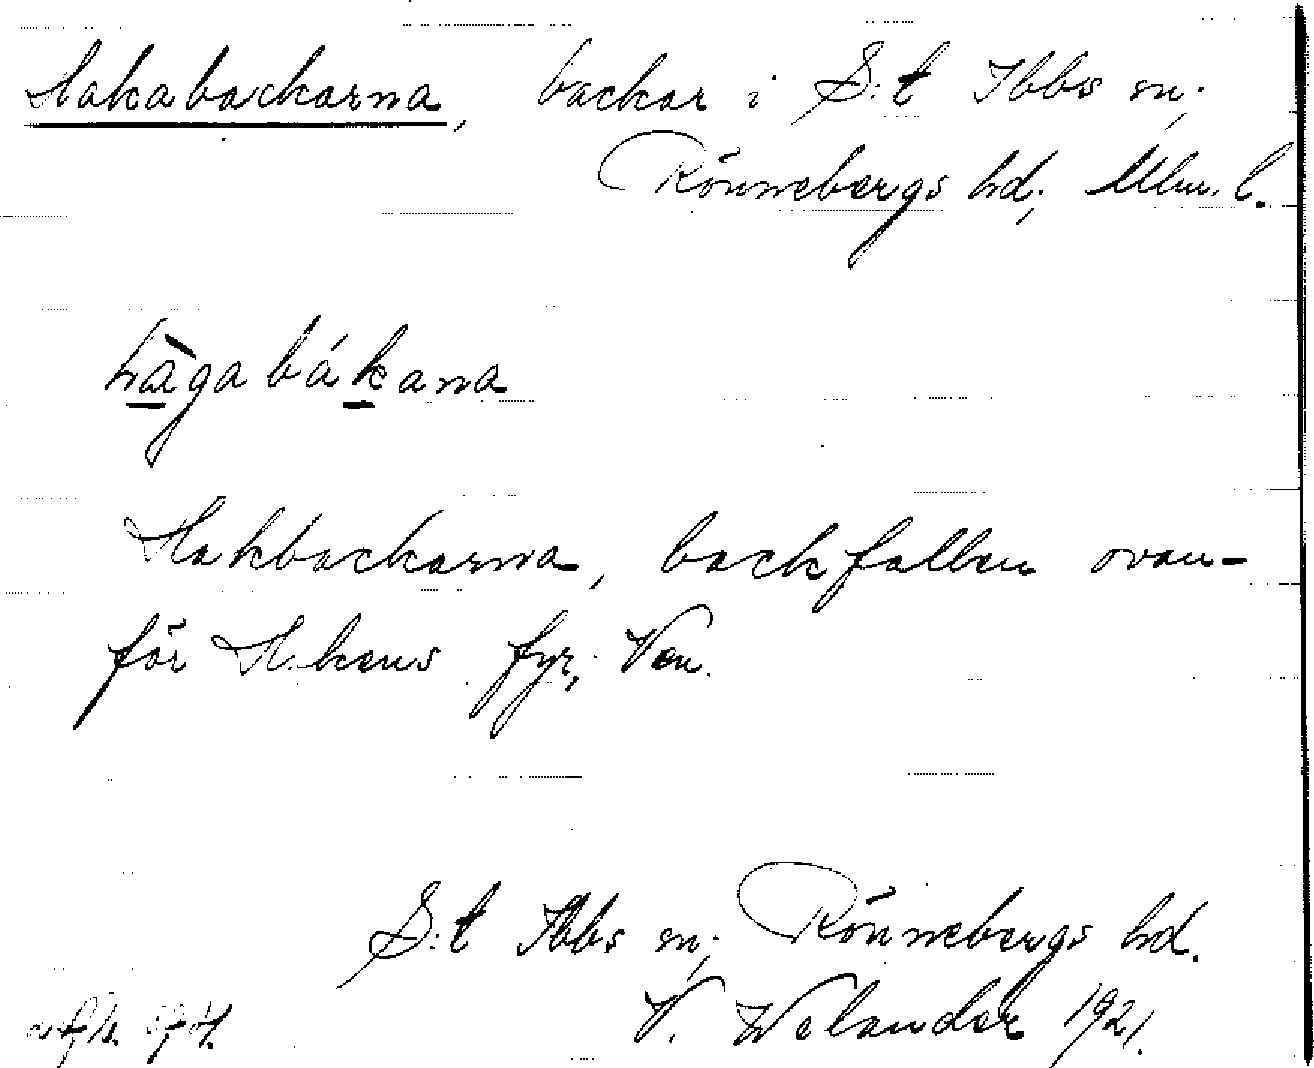 Hakabackarna, backar i S:t Ibbs sn;
Rönnebergs hd; Mlm. l.
hàgabákana
Hakbackarna, backfallen ovan-
för Hakens fyr, Ven.
S:t Ibbs sn; Rönnebergs hd.
V. Welander 1921.